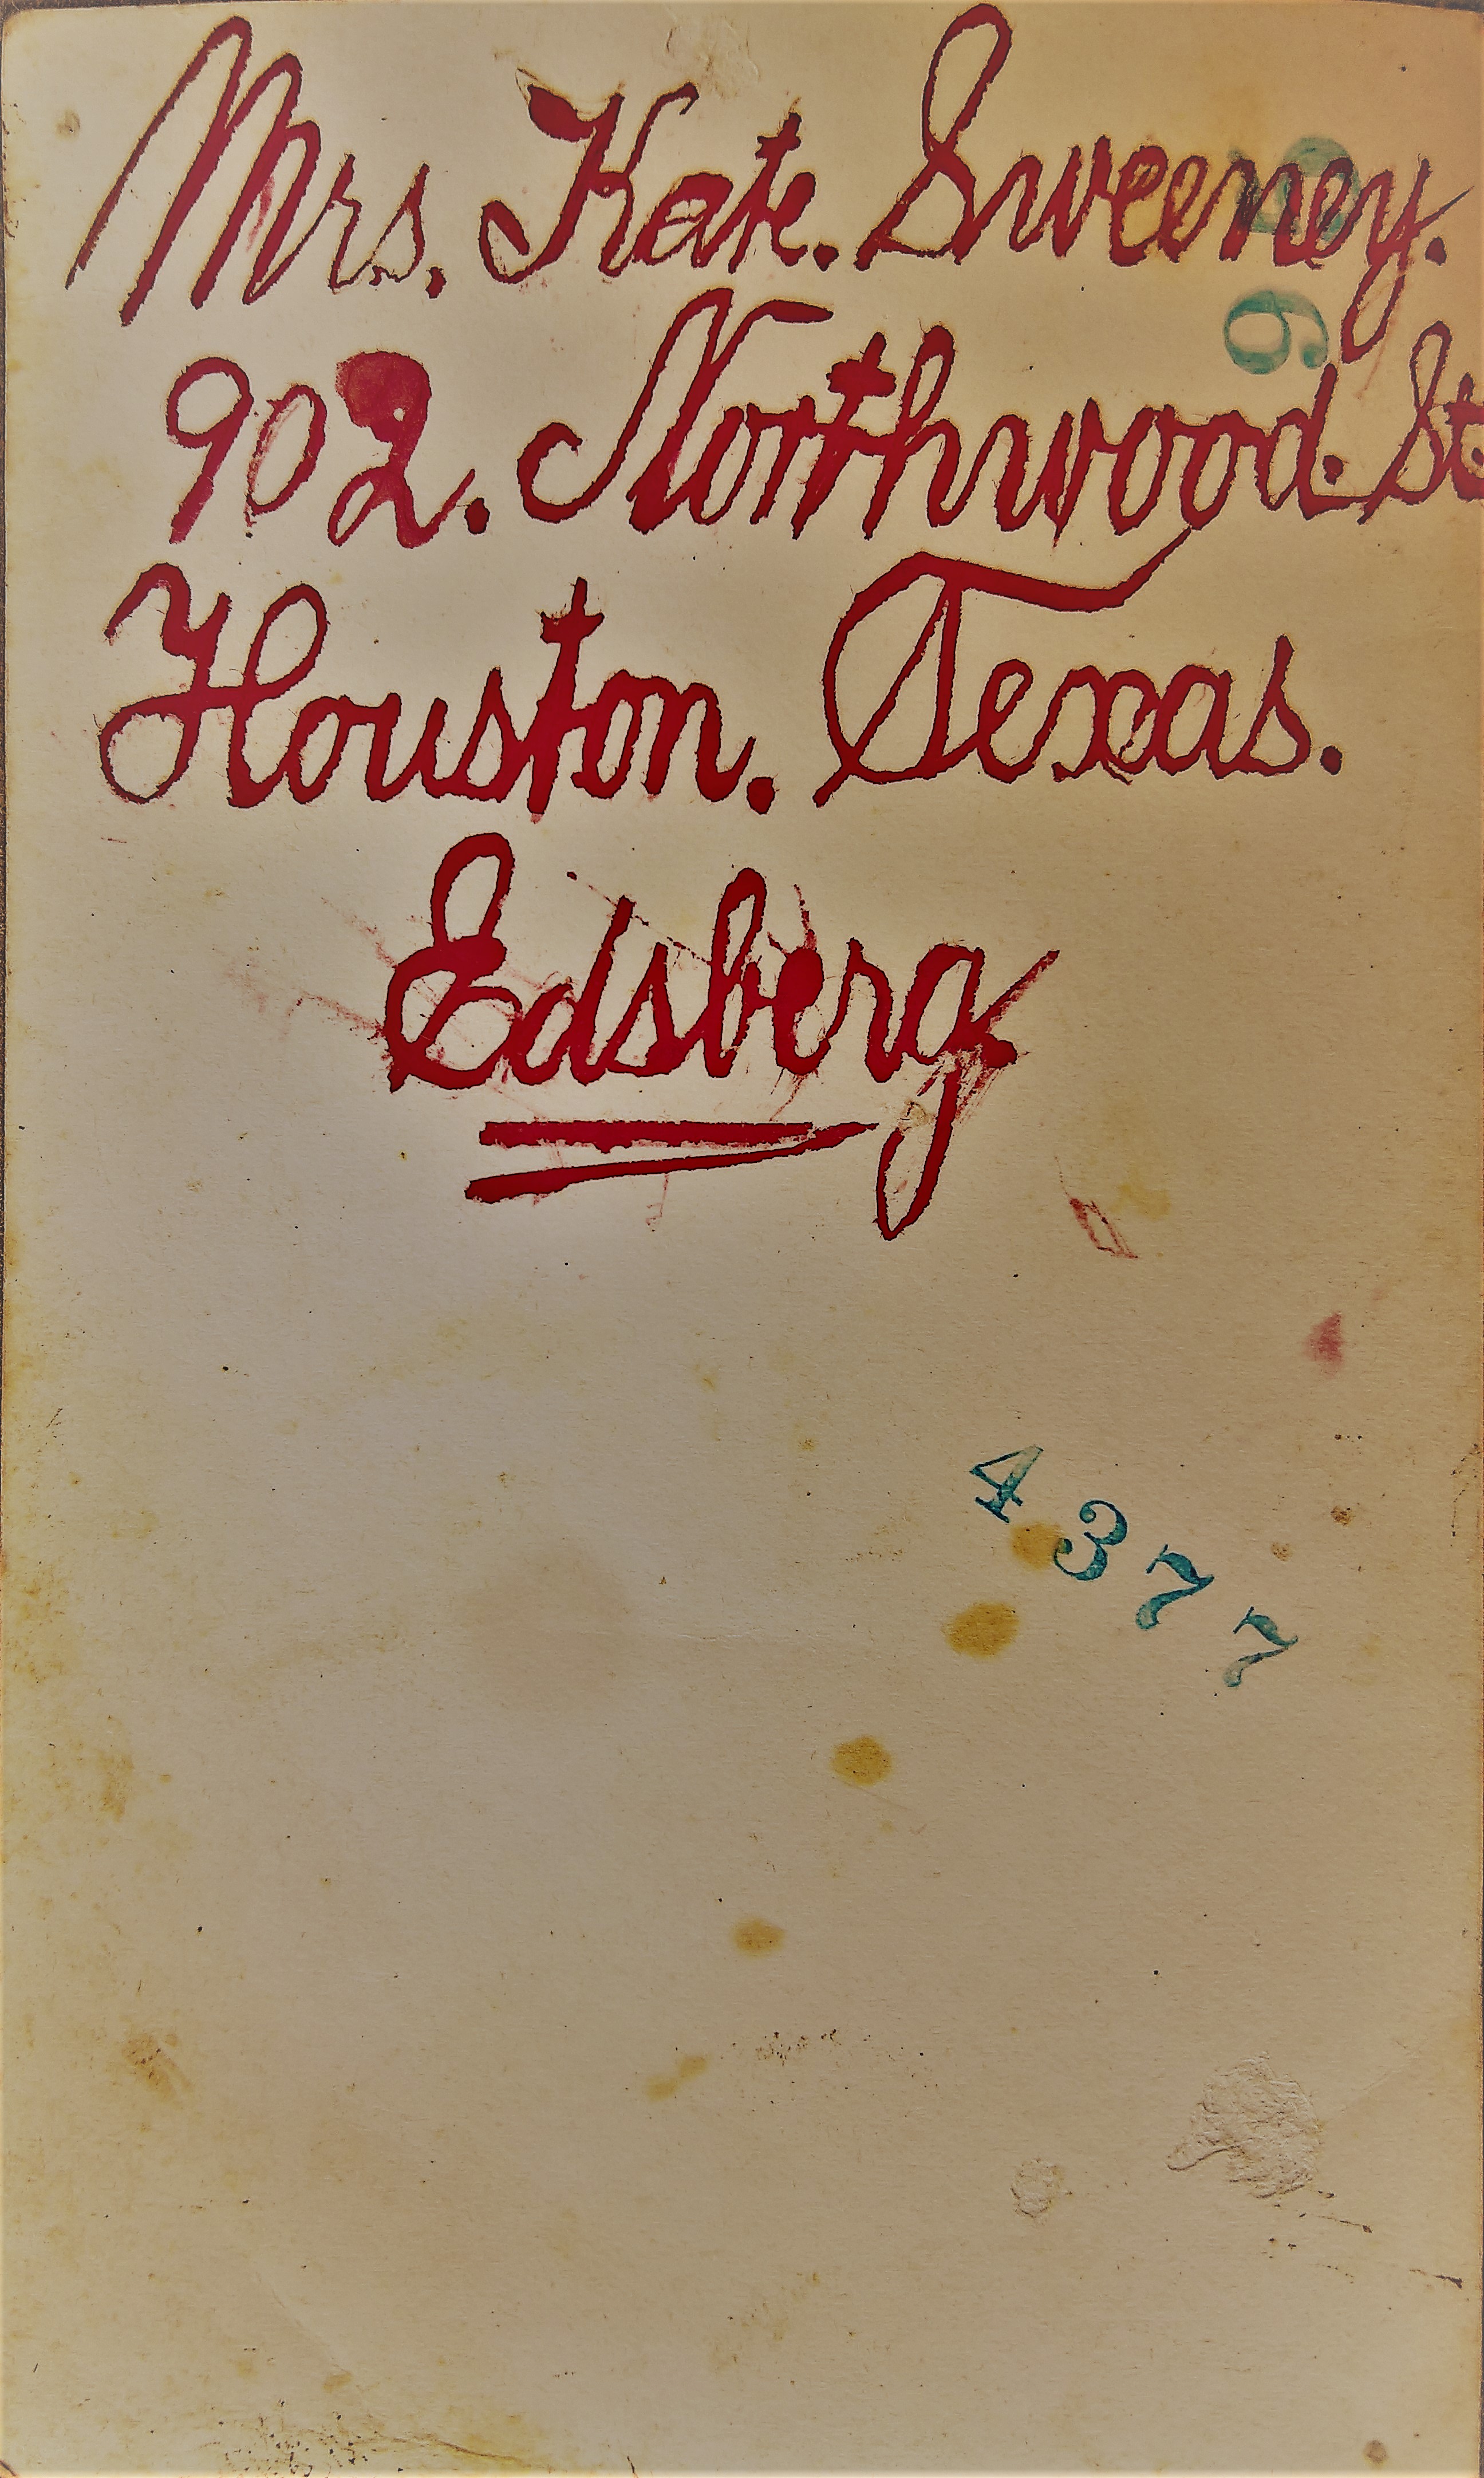 Mrs. Kate. Sweeney.
902. Northwood. St.
Houston. Texas.
Edsberg.
4377